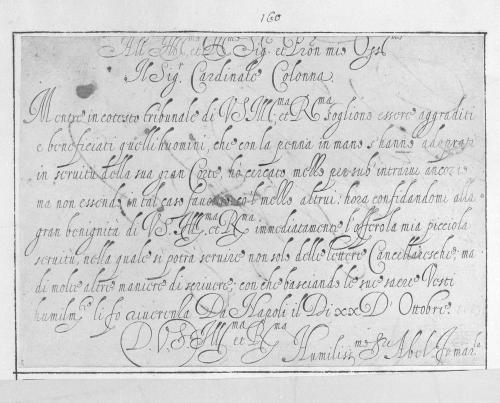 160
All' Ill^ma et R^mo Sig.^r et Pron mio Oss^mo
Il Sig.^r Cardinale Colonna.
Mentre in cotesto tribunale di V.S. Ill^ma et R^ma sogliono essere aggraditi
e beneficiati quelli huomini, che con la penna in mano s'hanno adoprati
in seruitù della sua gran Corte, hò cercato mello per sub intrarui anco io
ma non essendo in tal caso co'l mello altrui: hora confidandomi alla
gran benignità di V.S. Ill^ma et R^ma immediatamente l'offerò la mia picciola
seruitù, nella quale si potrà seruire non solo delle lettere Cancellaresche; ma
di molte altre maniere di scriuere; con che basciando le sue sacre Vesti
humilm^e li fo riuerenza Da Napoli il Dì xx D' Ottobre.
D. V. S. Ill^ma et R^ma
Humiliss^mo Ser^e